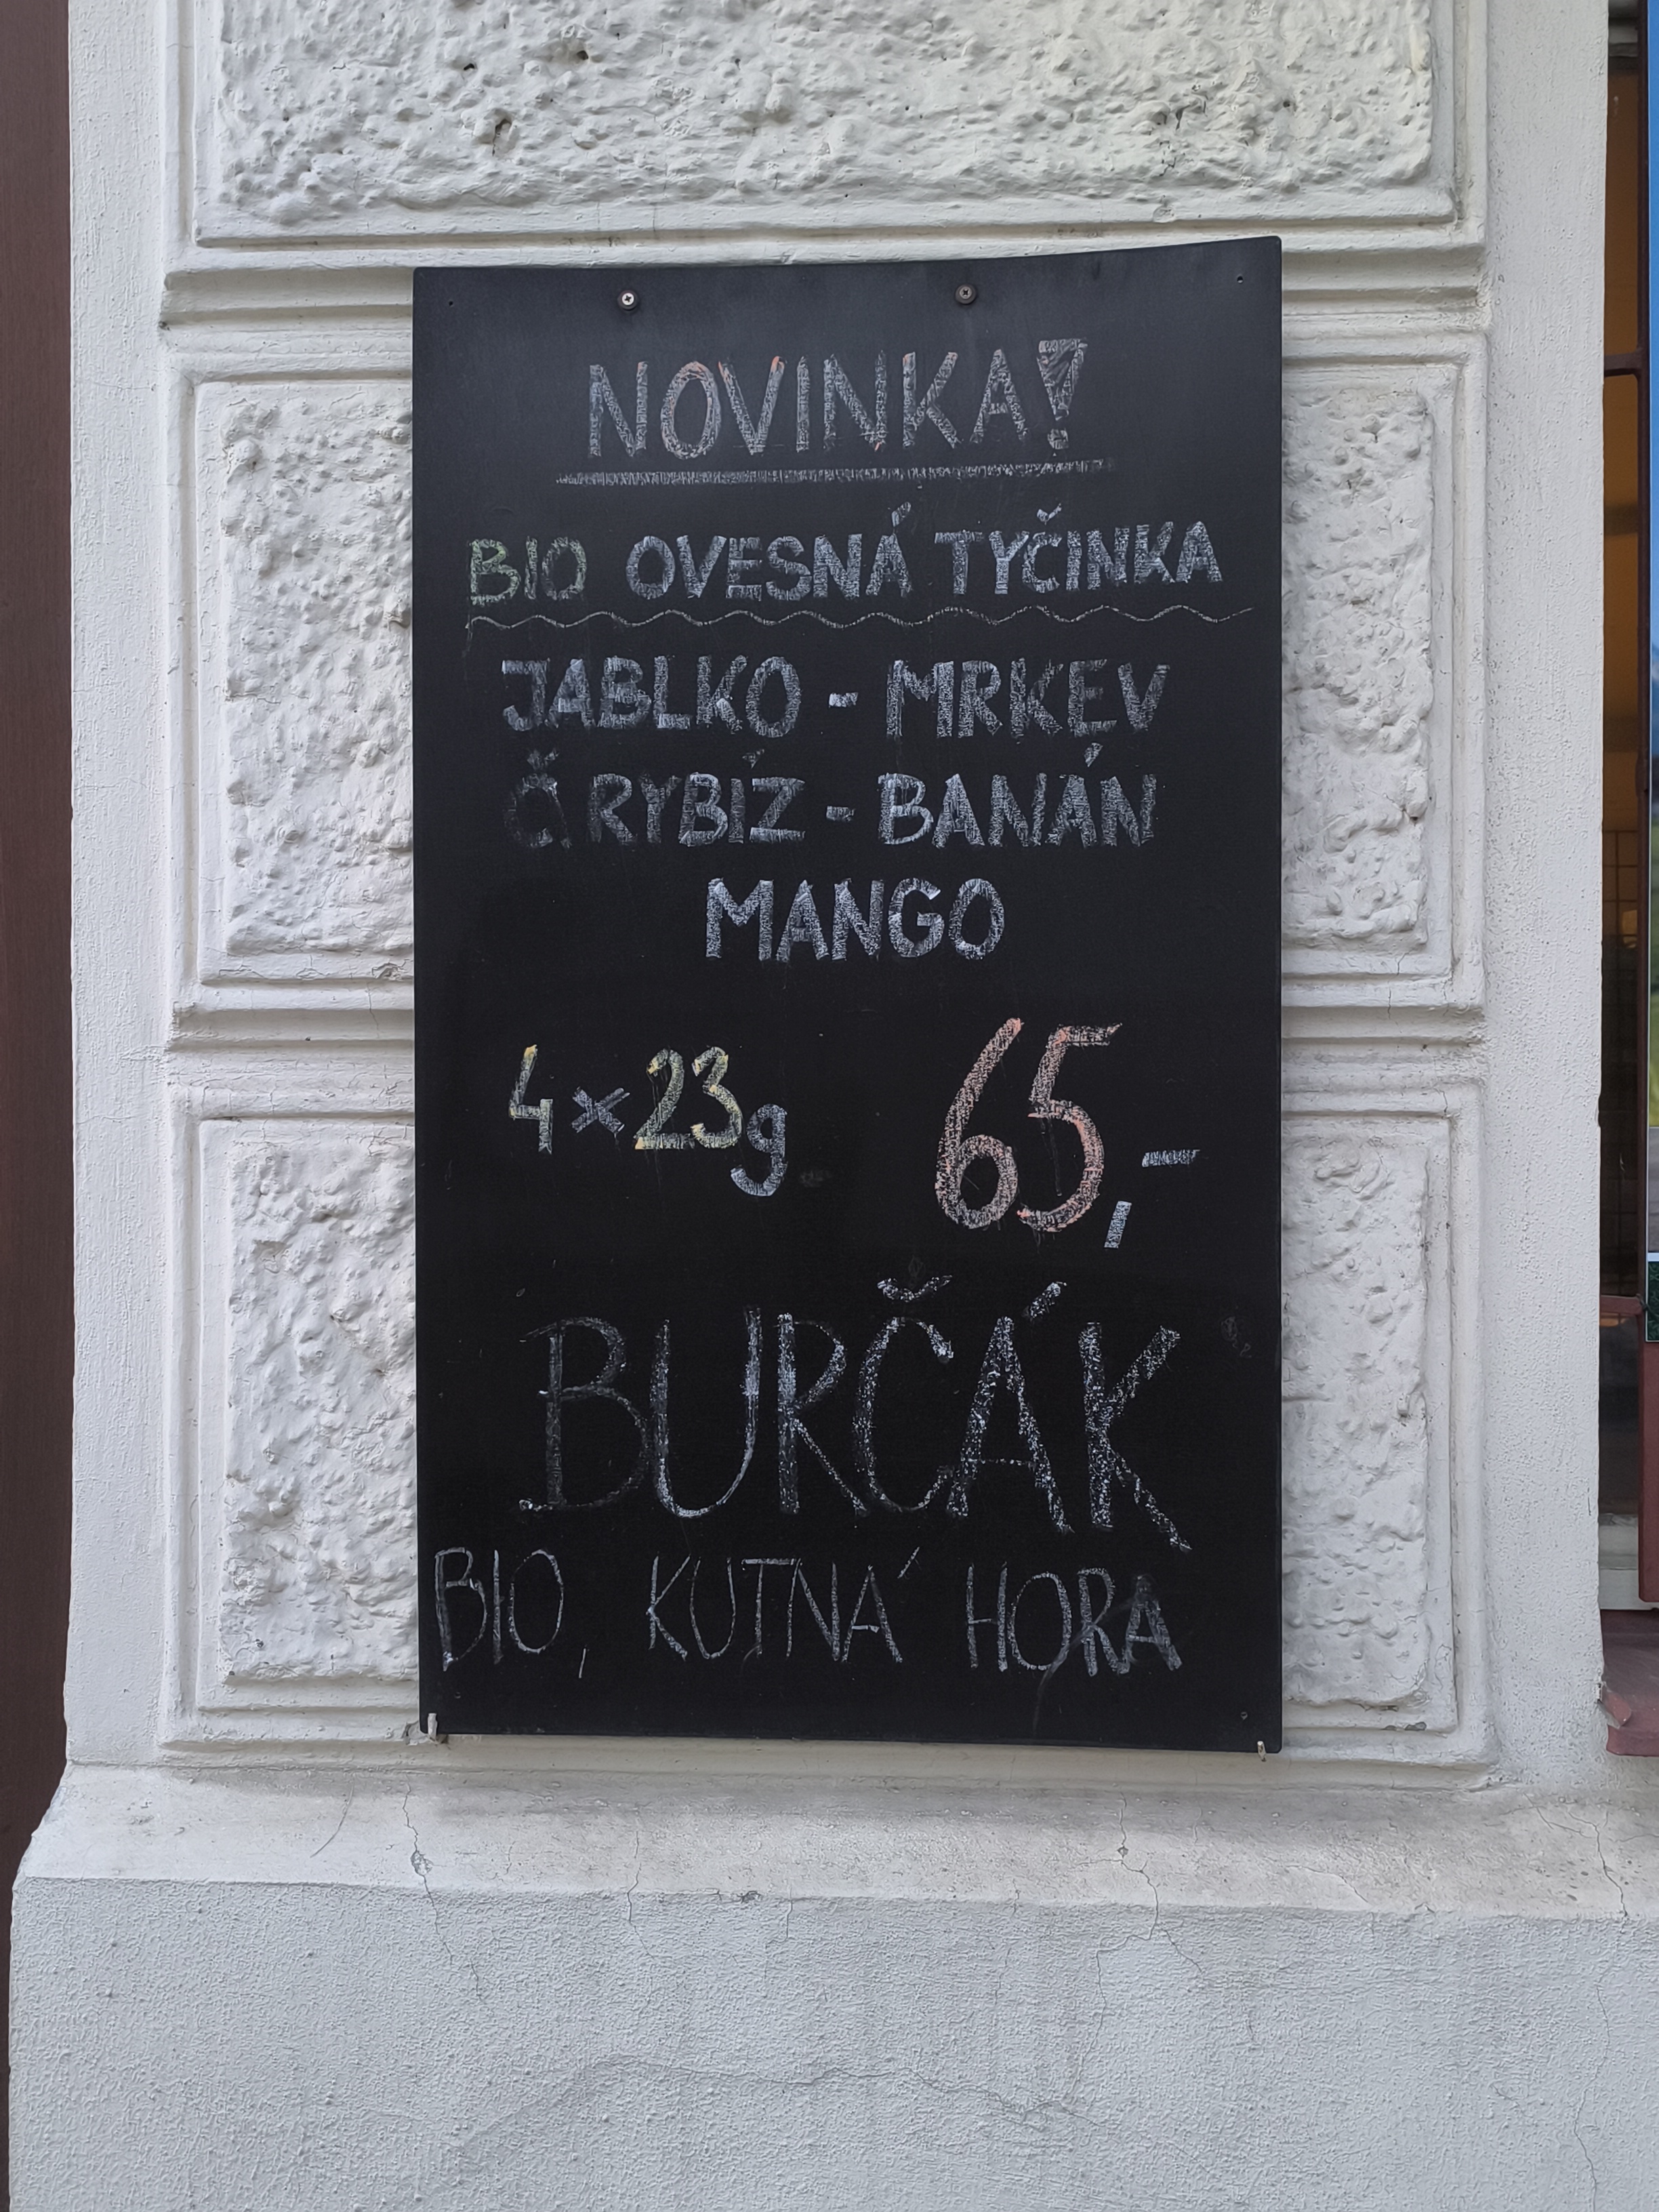 NOVINKA!
BIO OVESNÁ TYČINKA
JABLKO - MRKEV
Č. RYBÍZ - BANÁN
MANGO
4x23g 65,-
BURČÁK
BIO, KUTNÁ HORA